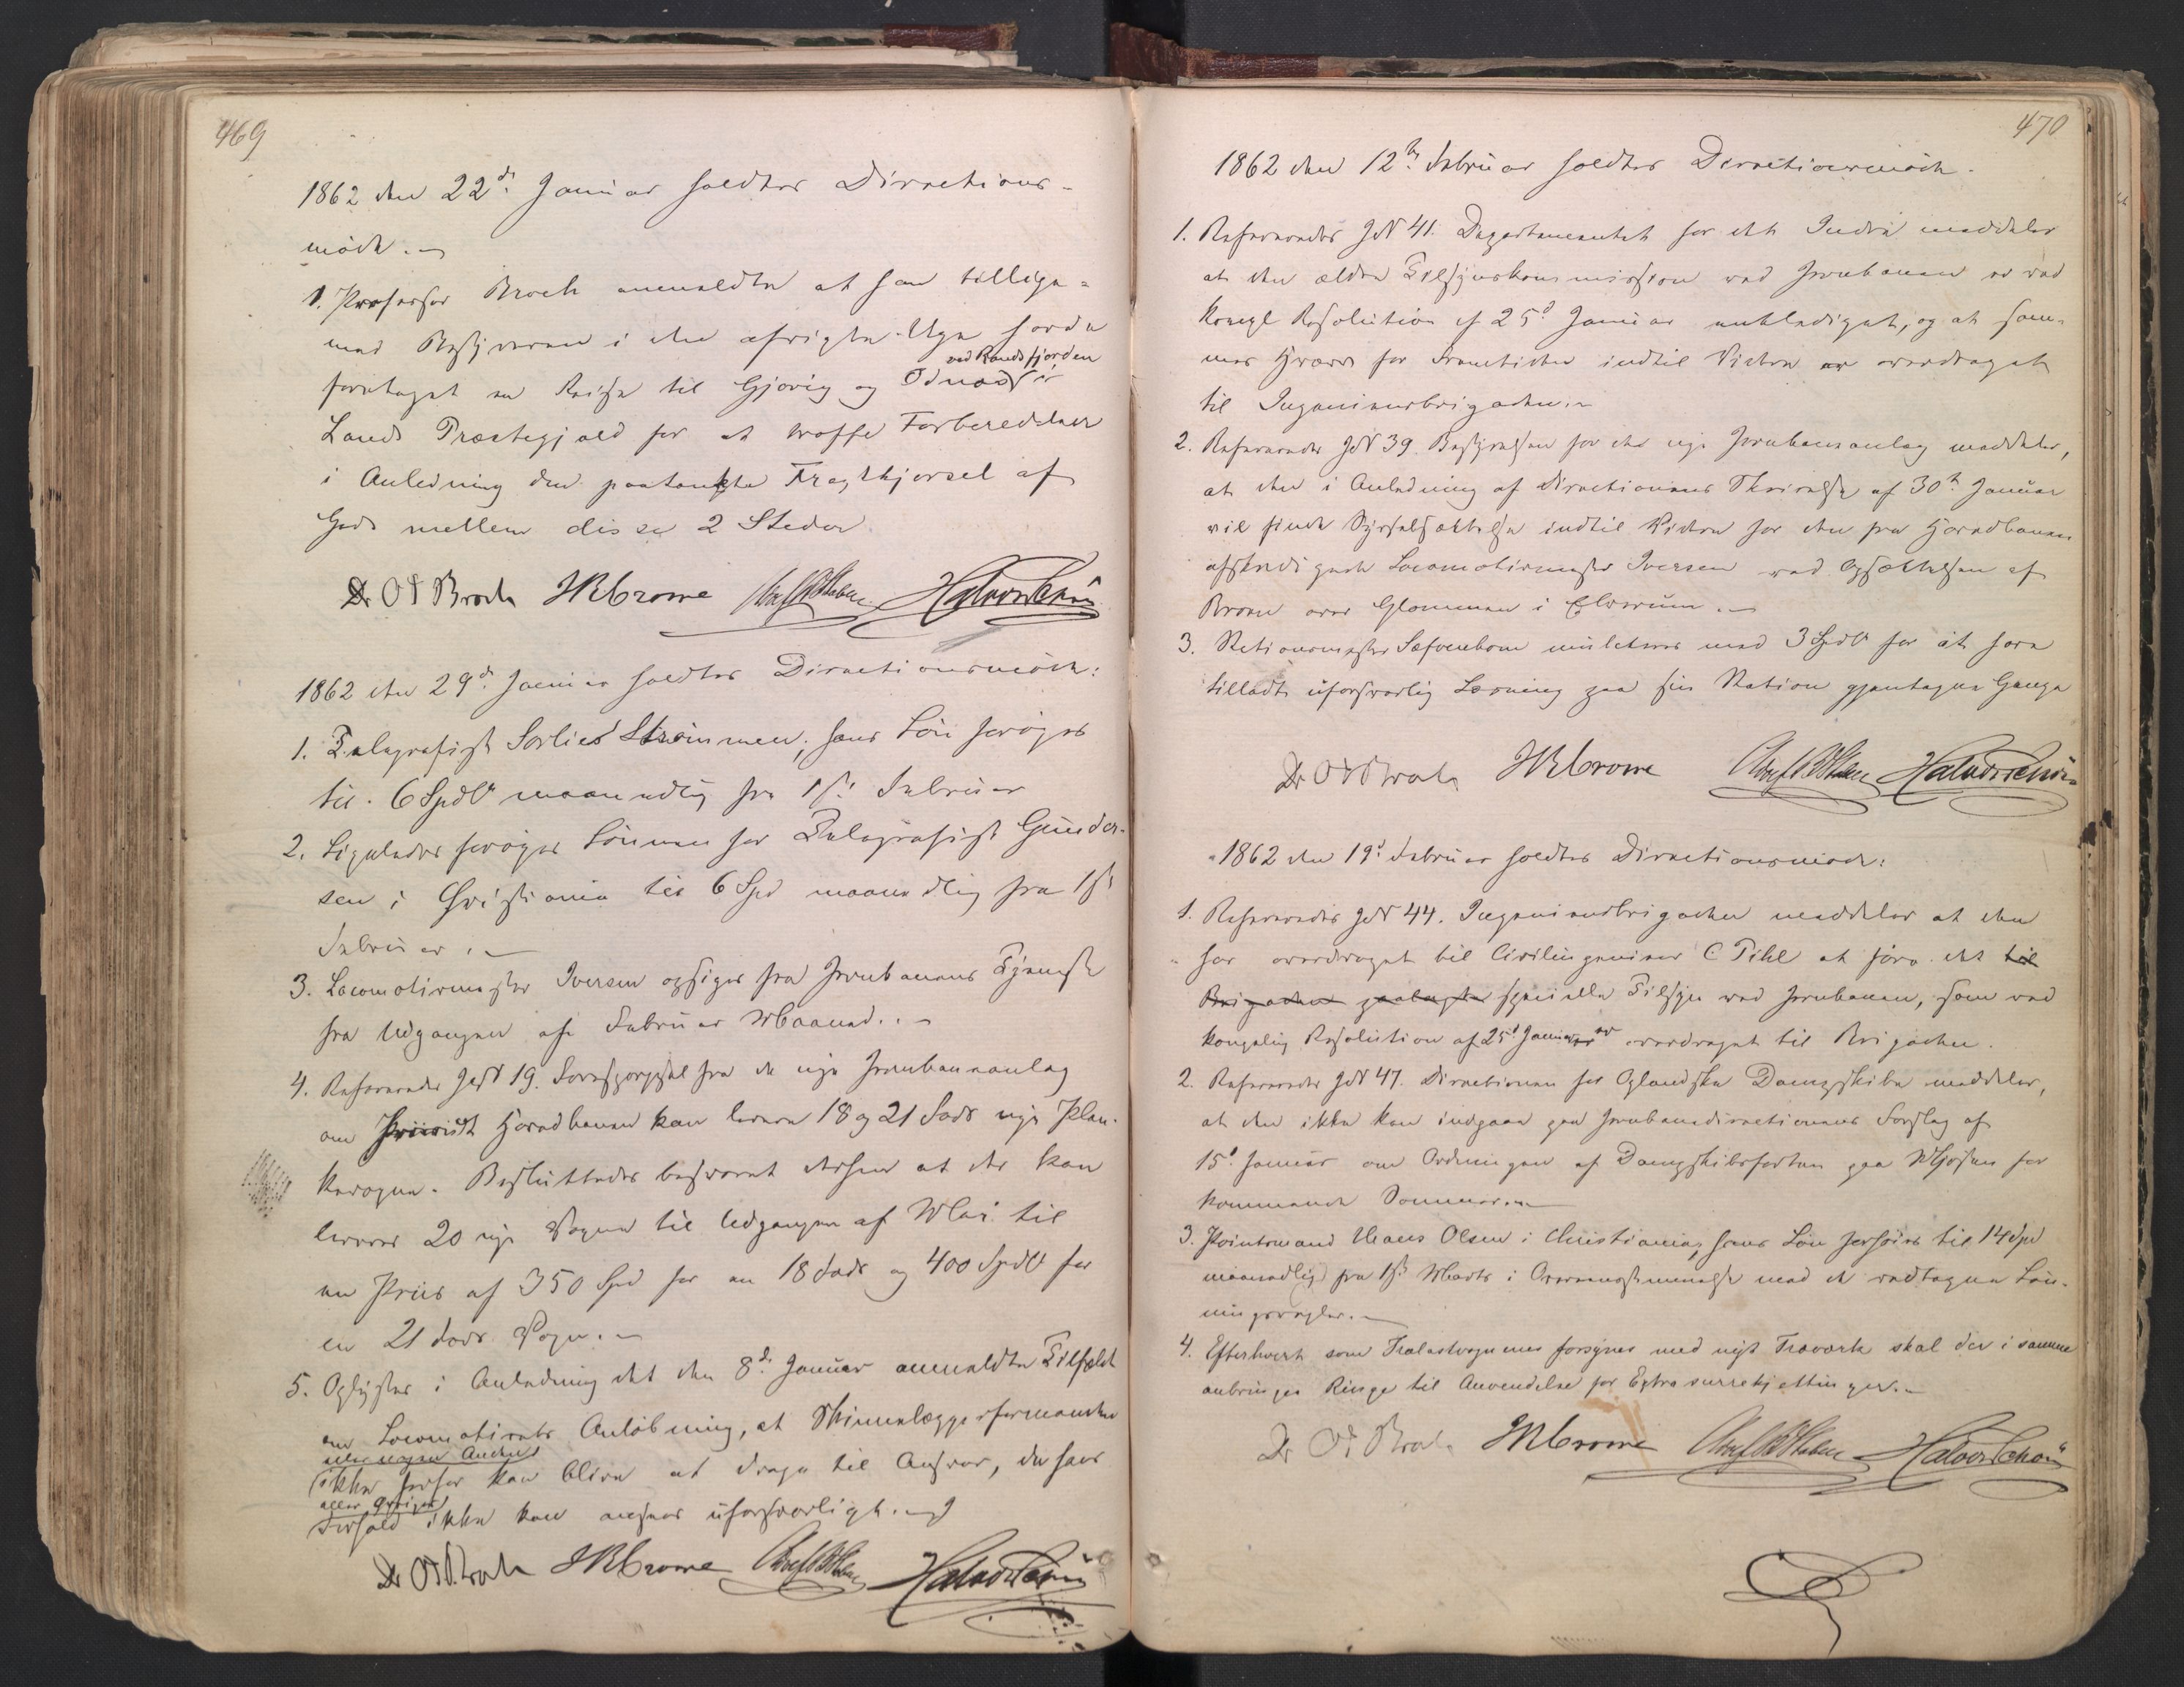 469
1862 den 22de Januar holdtes Directions-
möde.
1. Professor Broch anmeldte at han tillige-
med Bestyreren i den afvigte Uge havde
foretaget en Reise til Gjøvig og Odnæs i
ved Randsfjorden
Lands Præstegjæld for at træffe Forberedelser
i Anledning den paatænkte Fragtkjørsel af
Gods mellem disse 2 Steder
Dr O J Broch JRCrowe Halvor Schou
1862 den 29de Januar holdtes Directionsmöde:
1. Telegrafist Sørlies Strømmen, hans Løn forøges
til 6 Spdlr maanedlig fra 1ste Februar
2. Ligeledes forøges Lønnen for Telegrafist Gunder-
sen i Christiania til 6 Spd maanedlig fra 1ste
Februar.
3. Locomotivmester Iversen opsiges fra Jernbanens Tjeneste
fra Udgangen af Februar Maaned.
4. Refereredes JN 19. Forespørgsel fra de nye Jernbaneanlæg
om Hovedbanen kan levere 18 og 21 Fods nye Plan-
kevogne. Besluttedes besvaret derhen at der kan
leveres 20 nye Vogne til Udgangen af Mai til
en Priis af 350 Spd for en 18 Fods og 400 Spdlr for
en 21 Fods Vogn.
5. Oplystes i Anledning det den 8de Januar anmeldte Tilfælde
om Locomotivets Anløbning, at Skinnelæggerformanden
eller nogen Anden
ikke herfor kan blive at drage til Ansvar, da hans
eller Øvriges
Forhold ikke kan ansees uforsvarligt.
Dr O J Broch JRCrowe Halvor Schou
470
1862 den 12te Februar holdtes Directionsmöde.
1. Refereredes JN 41. Departementet for det Indre meddeler
at den ældre Tilsynskommission ved Jernbanen er ved
kongl Resolution af 25de Januar entlediget, og at sam-
mes Hverv for Fremtiden indtil Videre er overdraget
til Ingenieurbrigaden.
2. Refereredes JN 39. Bestyrelsen for de nye Jernbaneanlæg meddeler,
at den i Anledning af Directionens Skrivelse af 30te Januar
vil finde Sysselsættelse indtil Videre for den fra Hovedbanen
afskedigede Locomotivmester Iversen ved Opsættelsen af
Broen over Glommen i Elverum.
3. Stationsmester Sæfvenbom mulcteres med 3 Spdlr for at have
tilladt uforsvarlig Læsning paa sin Station gjentagne Gange
Dr O J Broch JRCrowe Halvor Schou
1862 den 19de Februar holdtes Directionsmöde:
1. Refereredes JN 44. Ingenieurbrigaden meddeler at den
har overdraget til Civilingeniør C Pihl at føre det til
Brigaden paalagte specielle Tilsyn ved Jernbanen, som ved
kongelig Resolution af 25de Januar er overdraget til Brigaden.
2. Refereredes JN 47. Directionen for Oplandske Dampskibe meddeler,
at den ikke kan indgaae paa Jernbanedirectionens Forslag af
15de Januar om Ordningen af Dampskibsfarten paa Mjøsen for
kommende Sommer.
3. Pointsmand Hans Olsen i Christiania, hans Løn forhøies til 14 Spd
maanedlig fra 1ste Marts i Overensstemmelse med de vedtagne Løn-
ningsregler.
4. Efterhvert som Trælastvognenes forsynes med nyt Træværk skal der i samme
anbringes Ringe til Anvendelse for Extra surrekjettinger.
Dr O J Broch JRCrowe Halvor Schou